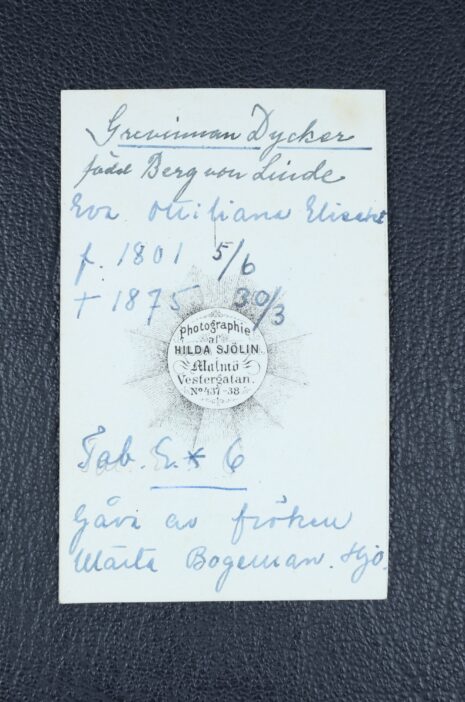 Grevinnan Dycker
född Berg von Linde
Eva Ottiliana Elisabet
f. 1801 5/6
+ 1875 30/3
Photographie
af
HILDA SJÖLIN
Malmö
Vestergatan.
No 437-38
Tab. 6
Gåva av fröken
Märta Bogeman. Hjo.